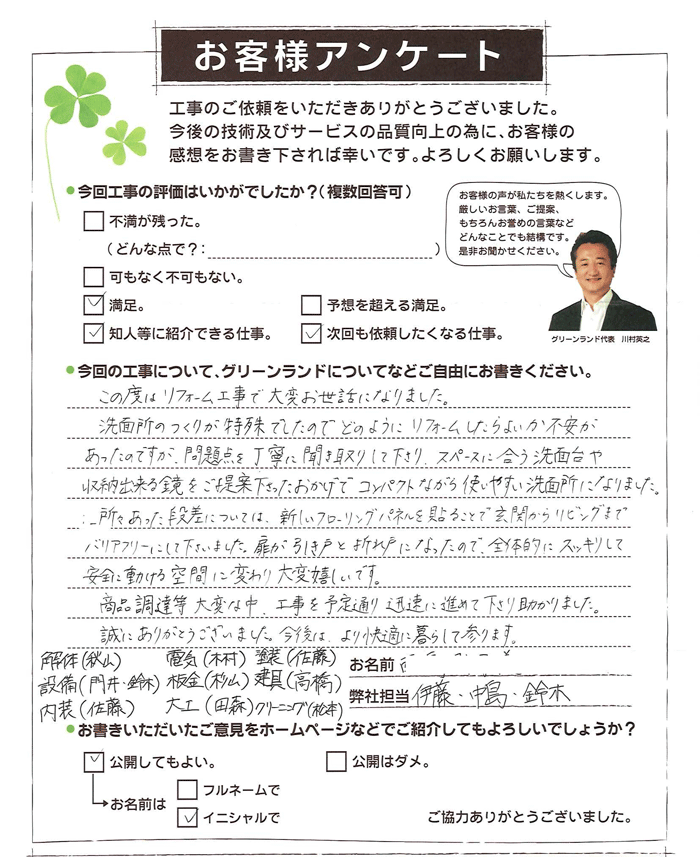 お客様アンケート
工事のご依頼をいただきありがとうございました。
今後の技術及びサービスの品質向上の為に、お客様の
感想をお書き下されば幸いです。よろしくお願いします。
●今回工事の評価はいかがでしたか?(複数回答可)
不満が残った。
(どんな点で?: )
可もなく不可もない。
満足。
予想を超える満足。
知人等に紹介できる仕事。
次回も依頼したくなる仕事。
お客様の声が私たちを熱くします。
厳しいお言葉、ご提案、
もちろんお誉めの言葉など
どんなことでも結構です。
是非お聞かせください。
グリーンランド代表 川村英之
●今回の工事について、グリーンランドについてなどご自由にお書きください。
この度はリフォーム工事で大変お世話になりました。
洗面所のつくりが特殊でしたのでどのようにリフォームしたらよいか不安が
あったのですが、問題点を丁寧に聞き取りして下さり、スペースに合う洗面台や
収納出来る鏡をご提案下さったおかげでコンパクトながら使いやすい洗面所になりました。
所々あった段差については、新しいフローリングパネルを貼ることで玄関からリビングまで
バリアフリーにして下さいました。扉が引き戸と折れ戸になったので、全体的にスッキリして
安全に動ける空間に変わり大変嬉しいです。
商品調達等大変な中、工事を予定通り迅速に進めて下さり助かりました。
誠にありがとうございました。今後は、より快適に暮らして参ります。
解体(秋山) 電気(木村) 塗装(佐藤)
設備(門井・鈴木) 板金(杉山) 建具(高橋)
内装(佐藤) 大工(田森) クリーニング(松本)
お名前
弊社担当 伊藤・中島・鈴木
●お書きいただいたご意見をホームページなどでご紹介してもよろしいでしょうか?
公開してもよい。
公開はダメ。
お名前は
フルネームで
イニシャルで
ご協力ありがとうございました。